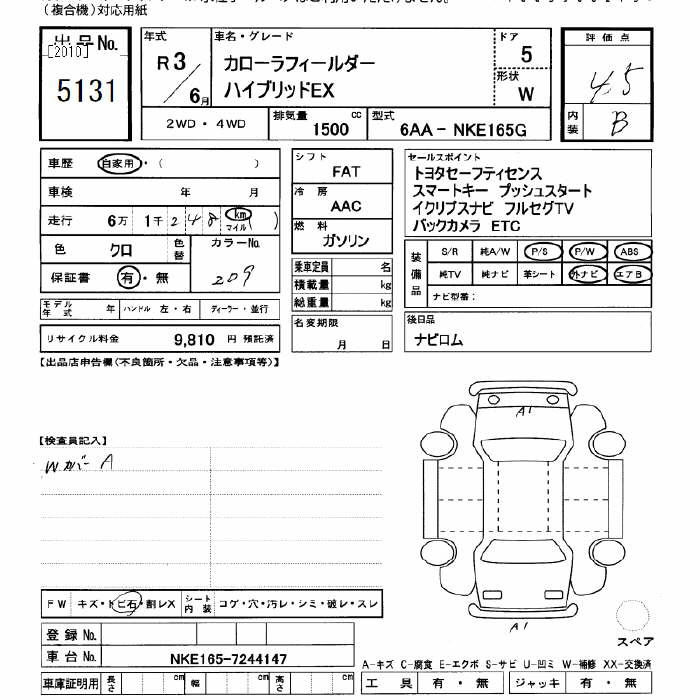 (複合機)対応用紙
出品No.
[2010]
5131
年式
R3/6月
車名・グレード
カローラフィールダー
ハイブリッドEX
ドア
5
形状
W
評価点
4.5
内装
B
2WD・4WD
排気量
1500 cc
型式
6AA-NKE165G
車歴 自家用・( )
車検 年 月
走行 6万 1千 2 4 8 km マイル ( )
色 クロ 色替 カラーNo.
209
保証書 有・無
モデル年式 年 ハンドル 左・右 ディーラー・並行
リサイクル料金 9,810 円 預託済
シフト
FAT
冷房
AAC
燃料
ガソリン
乗車定員 名
積載量 kg
総重量 kg
名変期限
月 日
セールスポイント
トヨタセーフティセンス
スマートキー プッシュスタート
イクリプスナビ フルセグTV
バックカメラ ETC
装備品
S/R 純A/W P/S P/W ABS
純TV 純ナビ 革シート 外ナビ エアB
ナビ型番:
後日品
ナビロム
【出品店申告欄(不良箇所・欠品・注意事項等)】
【検査員記入】
Wカバー A
A1
A1
スペア
FW キズ・トビ石・割レX シート内装 コゲ・穴・汚レ・シミ・破レ・スレ
登録No.
車台No. NKE165-7244147
A-キズ C-腐食 E-エクボ S-サビ U-凹ミ W-補修 XX-交換済
車庫証明用 長さ cm 幅 cm 高さ cm
工具 有・無 ジャッキ 有・無